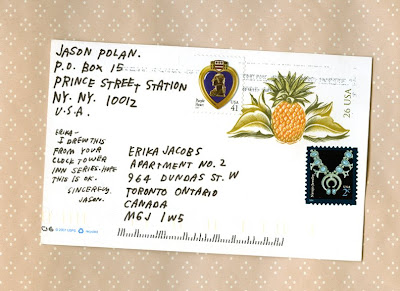 JASON POLAN.
P.O. BOX 15
PRINCE STREET STATION
NY. NY. 10012
U.S.A.
ERIKA-
I DREW THIS
FROM YOUR
CLOCK TOWER
INN SERIES. HOPE
THIS IS OK.
SINCERELY,
JASON.
ERIKA JACOBS
APARTMENT NO. 2
964 DUNDAS ST. W
TORONTO ONTARIO
CANADA
M6J 1W5
Purple Heart
USA 41
26 USA
USA 2¢